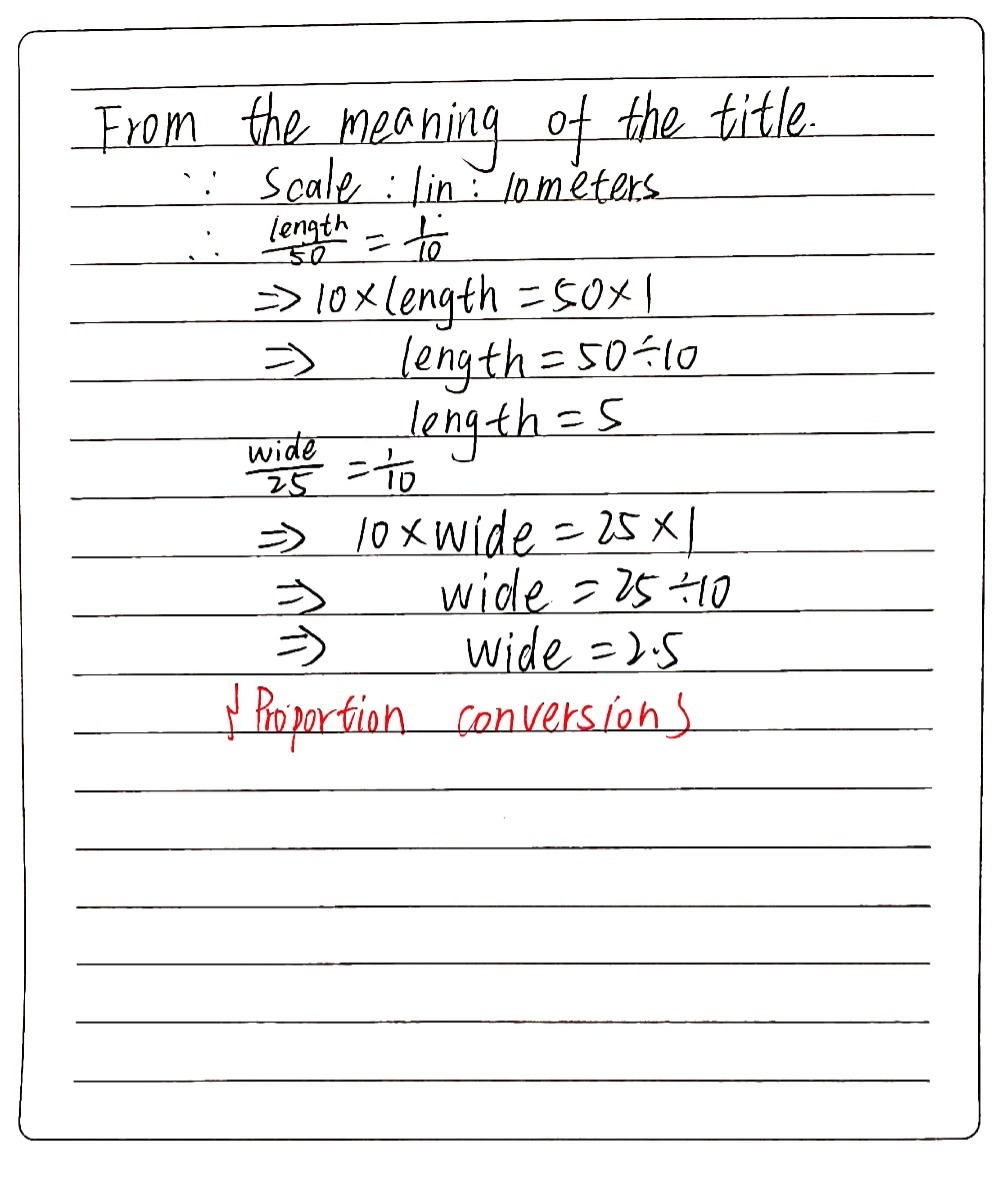 From the meaning of the title.
∵ Scale : 1in : 10meters
∴ length/50 = 1/10
⇒ 10×length = 50×1
⇒ length = 50÷10
length = 5
wide/25 = 1/10
⇒ 10×wide = 25×1
⇒ wide = 25÷10
⇒ wide = 2.5
{Proportion conversion}